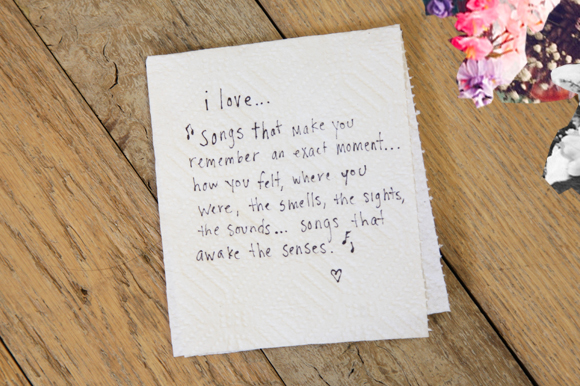 i love...
♪ songs that make you
remember an exact moment...
how you felt, where you
were, the smells, the sights,
the sounds... songs that
awake the senses. ♫
♡